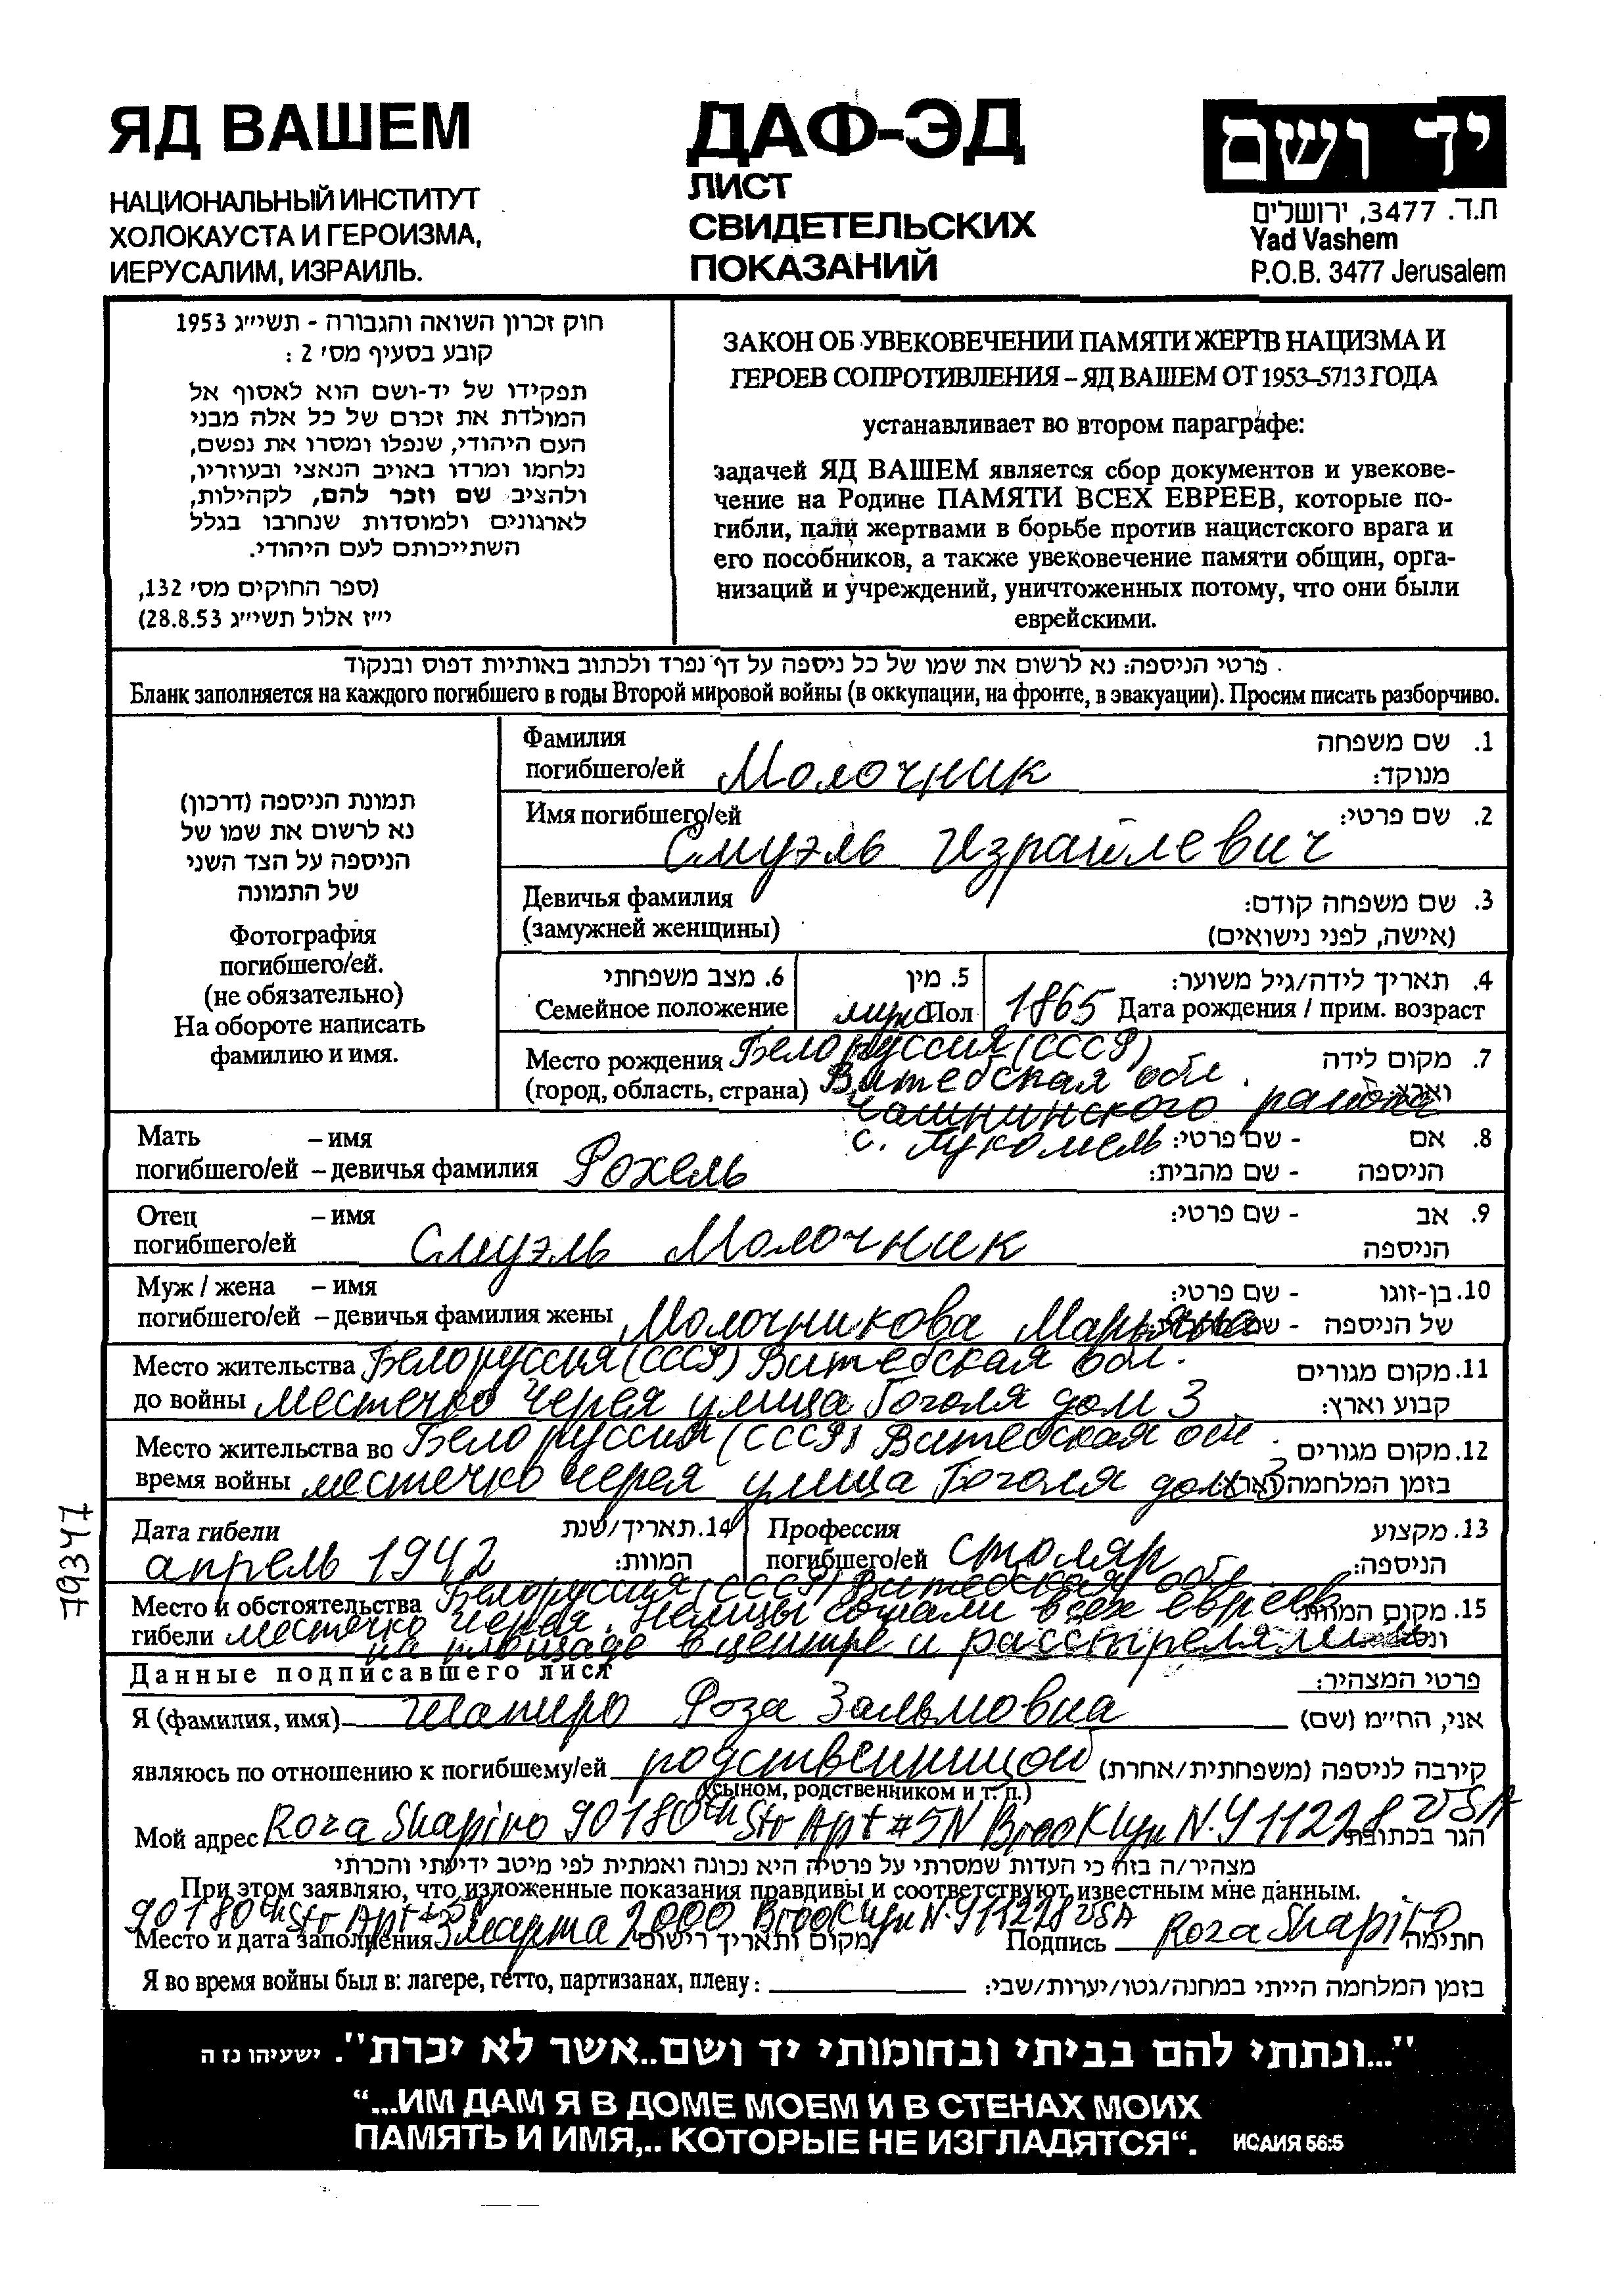 ЯД ВАШЕМ
НАЦИОНАЛЬНЫЙ ИНСТИТУТ
ХОЛОКАУСТА И ГЕРОИЗМА,
ИЕРУСАЛИМ, ИЗРАИЛЬ.
ДАФ-ЭД
ЛИСТ
СВИДЕТЕЛЬСКИХ
ПОКАЗАНИЙ
יד ושם
ת.ד. 3477, ירושלים
Yad Vashem
P.O.B. 3477 Jerusalem
חוק זכרון השואה והגבורה - תשי״ג 1953
קובע בסעיף מס׳ 2 :
תפקידו של יד-ושם הוא לאסוף אל
המולדת את זכרם של כל אלה מבני
העם היהודי, שנפלו ומסרו את נפשם,
נלחמו ומרדו באויב הנאצי ובעוזריו,
ולהציב שם וזכר להם, לקהילות,
לארגונים ולמוסדות שנחרבו בגלל
השתייכותם לעם היהודי.
(ספר החוקים מס׳ 132,
י״ז אלול תשי״ג 28.8.53)
ЗАКОН ОБ УВЕКОВЕЧЕНИИ ПАМЯТИ ЖЕРТВ НАЦИЗМА И
ГЕРОЕВ СОПРОТИВЛЕНИЯ – ЯД ВАШЕМ ОТ 1953–5713 ГОДА
устанавливает во втором параграфе:
задачей ЯД ВАШЕМ является сбор документов и увекове-
чение на Родине ПАМЯТИ ВСЕХ ЕВРЕЕВ, которые по-
гибли, пали жертвами в борьбе против нацистского врага и
его пособников, а также увековечение памяти общин, орга-
низаций и учреждений, уничтоженных потому, что они были
еврейскими.
פרטי הניספה: נא לרשום את שמו של כל ניספה על דף נפרד ולכתוב באותיות דפוס ובנקוד
Бланк заполняется на каждого погибшего в годы Второй мировой войны (в оккупации, на фронте, в эвакуации). Просим писать разборчиво.
תמונת הניספה (דרכון)
נא לרשום את שמו של
הניספה על הצד השני
של התמונה
Фотография
погибшего/ей.
(не обязательно)
На обороте написать
фамилию и имя.
Фамилия 1. שם משפחה
погибшего/ей Молочник מנוקד:
Имя погибшего/ей 2. שם פרטי:
Смуэль Израйлевич
Девичья фамилия 3. שם משפחה קודם:
(замужней женщины) (אישה, לפני נישואים)
6. מצב משפחתי 5. מין 4. תאריך לידה/גיל משוער:
Семейное положение муж Пол 1865 Дата рождения / прим. возраст
Место рождения Белоруссия (СССР) 7. מקום לידה
(город, область, страна) Витебская обл. וארץ:
Чашнинского района
Мать – имя с. Лукомель - שם פרטי: 8. אם
погибшего/ей – девичья фамилия Рохель - שם מהבית: הניספה
Отец – имя - שם פרטי: 9. אב
погибшего/ей Смуэль Молочник הניספה
Муж / жена – имя - שם פרטי: 10. בן-זוגו
погибшего/ей – девичья фамилия жены Молочникова Марьяна של הניספה
Место жительства Белоруссия (СССР) Витебская обл. 11. מקום מגורים
до войны местечко Черея улица Гоголя дом 3 קבוע וארץ:
Место жительства во Белоруссия (СССР) Витебская обл. 12. מקום מגורים
время войны местечко Черея улица Гоголя дом 3 בזמן המלחמה
Дата гибели 14. תאריך/שנת Профессия 13. מקצוע
апрель 1942 המוות: погибшего/ей столяр הניספה:
Место и обстоятельства Белоруссия (СССР) Витебская обл. 15. מקום המוות
гибели местечко Черея. Немцы согнали всех евреев
на площаде в центре и расстреляли
Данные подписавшего лист פרטי המצהיר:
Я (фамилия, имя) Шапиро Роза Залмовна אני, הח״מ (שם)
являюсь по отношению к погибшему/ей родственницой קירבה לניספה (משפחתית/אחרת)
(сыном, родственником и т. п.)
Мой адрес Roza Shapiro 90180th Str Apt #5N Brooklyn N.Y 11228 USA הגר בכתובת
מצהיר/ה בזה כי העדות שמסרתי על פרטיה היא נכונה ואמתית לפי מיטב ידיעתי והכרתי
При этом заявляю, что изложенные показания правдивы и соответствуют известным мне данным.
90180th Str Apt #5N Brooklyn N.Y 11228 USA
Место и дата заполнения 3 марта 2000 מקום ותאריך רישום Подпись Roza Shapiro חתימה
Я во время войны был в: лагере, гетто, партизанах, плену: בזמן המלחמה הייתי במחנה/גטו/יערות/שבי:
79347
"...ונתתי להם בביתי ובחומותי יד ושם..אשר לא יכרת". ישעיהו נז ה
“...ИМ ДАМ Я В ДОМЕ МОЕМ И В СТЕНАХ МОИХ
ПАМЯТЬ И ИМЯ,.. КОТОРЫЕ НЕ ИЗГЛАДЯТСЯ“. ИСАИЯ 56:5